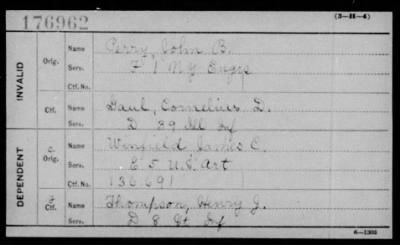 176962
(3-H-4)
INVALID
Orig.
Name Perry, John B.
Serv. F 1 N.Y. Engrs
Ctf. No.
Ctf.
Name Gaul, Cornelius D.
Serv. D 89 Ill Inf
DEPENDENT
C. Orig.
Name Winfield James C.
Serv. E 5 U.S. Art
Ctf. No. 136691
Ctf.
Name Thompson, Henry J.
Serv. D 8 Inf
6—1303